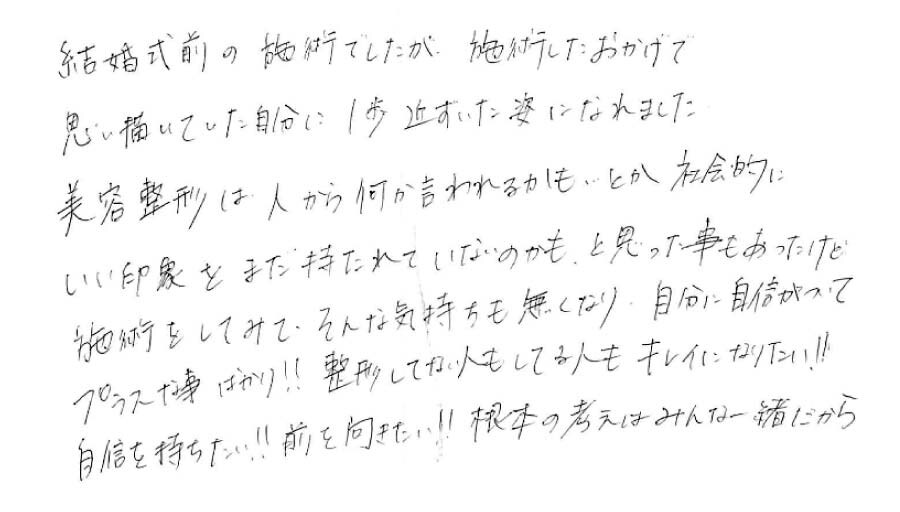 結婚式前の施術でしたが、施術したおかげで
思い描いていた自分に1歩近ずいた姿になれました
美容整形は人から何か言われるかも、とか社会的に
いい印象をまだ持たれていないのかも、と思った事もあったけど
施術をしてみて、そんな気持ちも無くなり、自分に自信がついて
プラスな事ばかり!!整形してない人もしてる人もキレイになりたい!!
自信を持ちたい!!前を向きたい!!根本の考えはみんな一緒だから